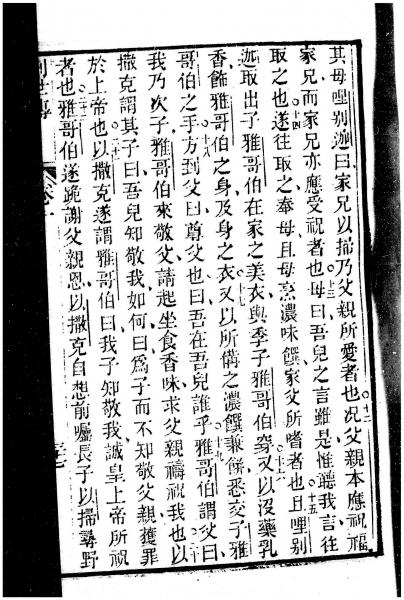 其母哩别迦曰家兄以掃乃父親所愛者也況父親本應祝福
家兄而家兄亦應受祝者也母曰吾兒之言雖是惟聽我言往
取之也遂往取之奉母且母烹濃味饌家父所嗜者也且哩别
迦取出子雅哥伯在家之美衣與季子雅哥伯穿又以没藥乳
香飾雅哥伯之身及身之衣又以所備之濃饌兼餅悉交子雅
哥伯之手方到父曰尊父也曰吾在吾兒誰乎雅哥伯謂父曰
我乃次子雅哥伯來敬父請起坐食香味求父親禱祝我也以
撒克謂其子曰吾兒知敬我如何曰爲子而不知敬父親獲罪
於上帝也以撒克遂謂雅哥伯曰我子知敬我誠皇上帝所祝
者也雅哥伯遂跪謝父親恩以撒克自想前囑長子以掃尋野